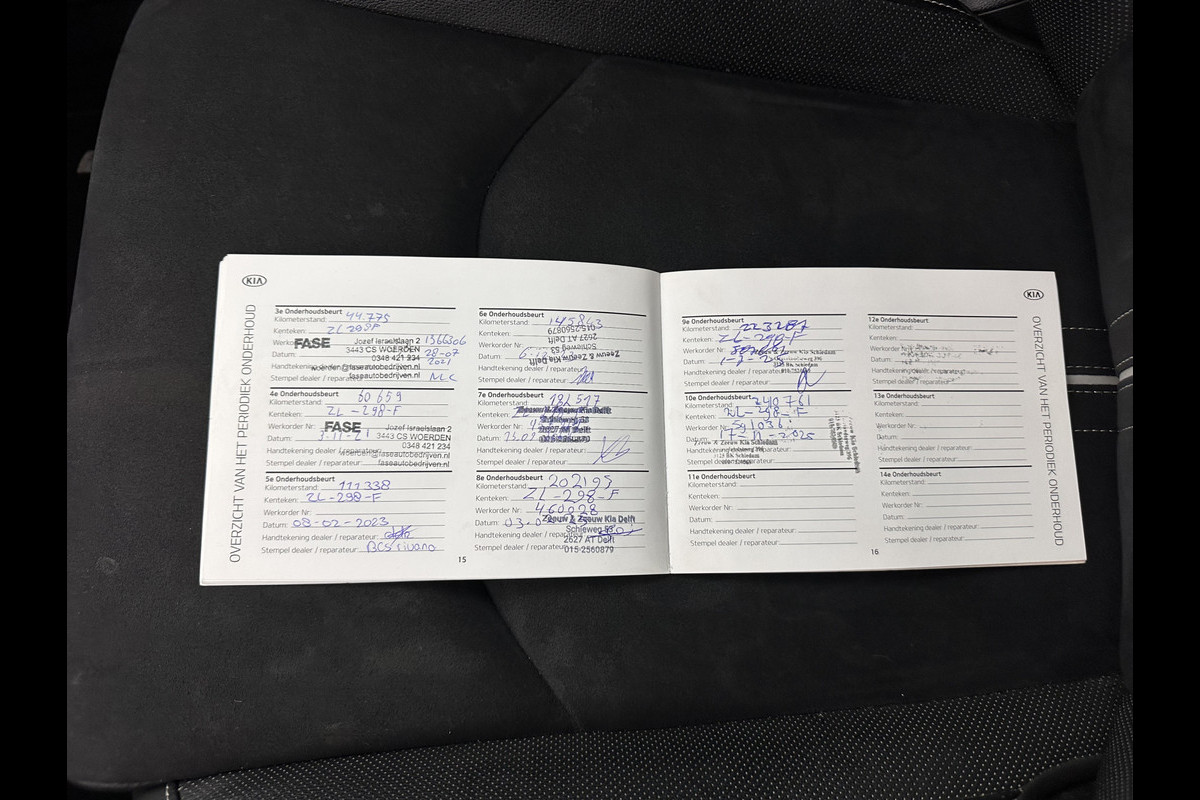 KIA
OVERZICHT VAN HET PERIODIEK ONDERHOUD
3e Onderhoudsbeurt
Kilometerstand: 44.775
Kenteken: ZL298F
FASE Jozef Israelslaan 2 1366306
3443 CS WOERDEN
Datum: 0348 421 234 28-07 2021
Handtekening woerden@faseautobedrijven.nl
Stempel dealer / reparateur faseautobedrijven.nl NLC
4e Onderhoudsbeurt
Kilometerstand: 60659
Kenteken: ZL-298-F
Werkorder Nr: FASE Jozef Israelslaan 2
Datum: 3-11-21 3443 CS WOERDEN
0348 421 234
Handtekening dealer woerden@faseautobedrijven.nl
Stempel dealer / reparateur: faseautobedrijven.nl
5e Onderhoudsbeurt
Kilometerstand: 111338
Kenteken: ZL-298-F
Werkorder Nr:
Datum: 08-02-2023
Handtekening dealer / reparateur:
Stempel dealer / reparateur: BCS
6e Onderhoudsbeurt
Kilometerstand: 145863
Kenteken: 015-2560879
Werkorder Nr: 2627 AT Delft
Datum: Schieweg 53
Zeeuw & Zeeuw Kia Delft
Handtekening dealer
Stempel dealer / reparateur:
7e Onderhoudsbeurt
Kilometerstand: 182517
Kenteken: Zeeuw & Zeeuw Kia Delft
Werkorder Nr: Schieweg 53
Datum: 2627 AT Delft
015-2560879
Handtekening dealer / reparateur:
Stempel dealer / reparateur:
8e Onderhoudsbeurt
Kilometerstand: 202195
Kenteken: ZL-298-F
Werkorder Nr: 460028
Datum: 03. Zeeuw & Zeeuw Kia Delft
Schieweg 53
Handtekening dealer / reparateur: 2627 AT Delft
Stempel dealer / reparateur: 015-2560879
15
KIA
OVERZICHT VAN HET PERIODIEK ONDERHOUD
9e Onderhoudsbeurt
Kilometerstand: 223287
Kenteken: ZL-298-F
Werkorder Nr: Zeeuw Kia Schiedam
Datum:
Handtekening dealer / reparateur:
Stempel dealer / reparateur:
10e Onderhoudsbeurt
Kilometerstand: 240761
Kenteken: ZL-298-F
Werkorder Nr: 591036
Datum: 17-11-2025
Zeeuw & Zeeuw Kia Schiedam
Handtekening
3125 BK Schiedam
Stempel dealer / reparateur:
11e Onderhoudsbeurt
Kilometerstand:
Kenteken:
Werkorder Nr:
Datum:
Handtekening dealer / reparateur:
Stempel dealer / reparateur:
12e Onderhoudsbeurt
Kilometerstand:
Kenteken:
Werkorder Nr:
Datum:
Handtekening
Stempel dealer / reparateur:
13e Onderhoudsbeurt
Kilometerstand:
Kenteken:
Werkorder Nr:
Datum:
Handtekening dealer / reparateur:
Stempel dealer / reparateur:
14e Onderhoudsbeurt
Kilometerstand:
Kenteken:
Werkorder Nr:
Datum:
Handtekening dealer / reparateur:
Stempel dealer / reparateur:
16